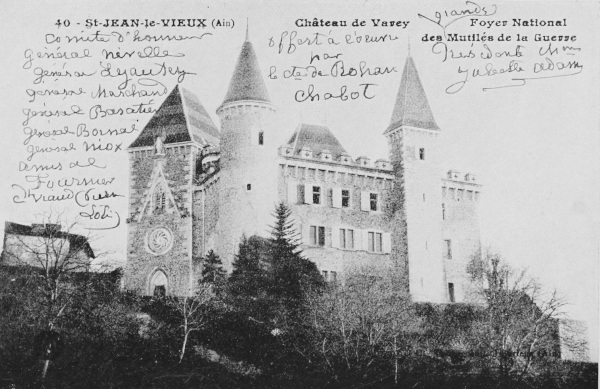 40 - St-JEAN-le-VIEUX (Ain)
Château de Varey
grande Foyer National
des Mutilés de la Guerre
Comité d'honneur
général nivelle
général Lyautey
général Marchand
général Baratier
général Bonnal
général niox
amis al
Fournier
offert à l'oeuvre
par
le cte de Rohan
Chabot
Présidente Mme
Juliette Adam